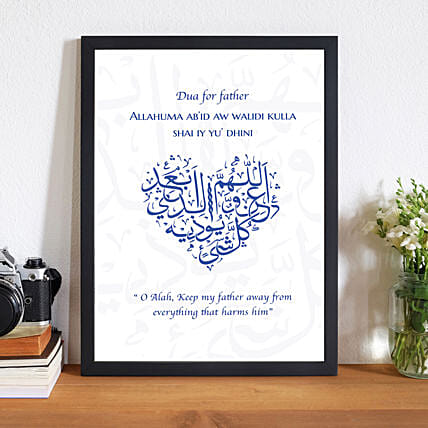 Dua for father
ALLAHUMA AB'ID AW WALIDI KULLA
SHAI IY YU' DHINI
اللهم أبعد
عن والدي
كل شيئ يؤذيه
“ O Alah, Keep my father away from
everything that harms him”